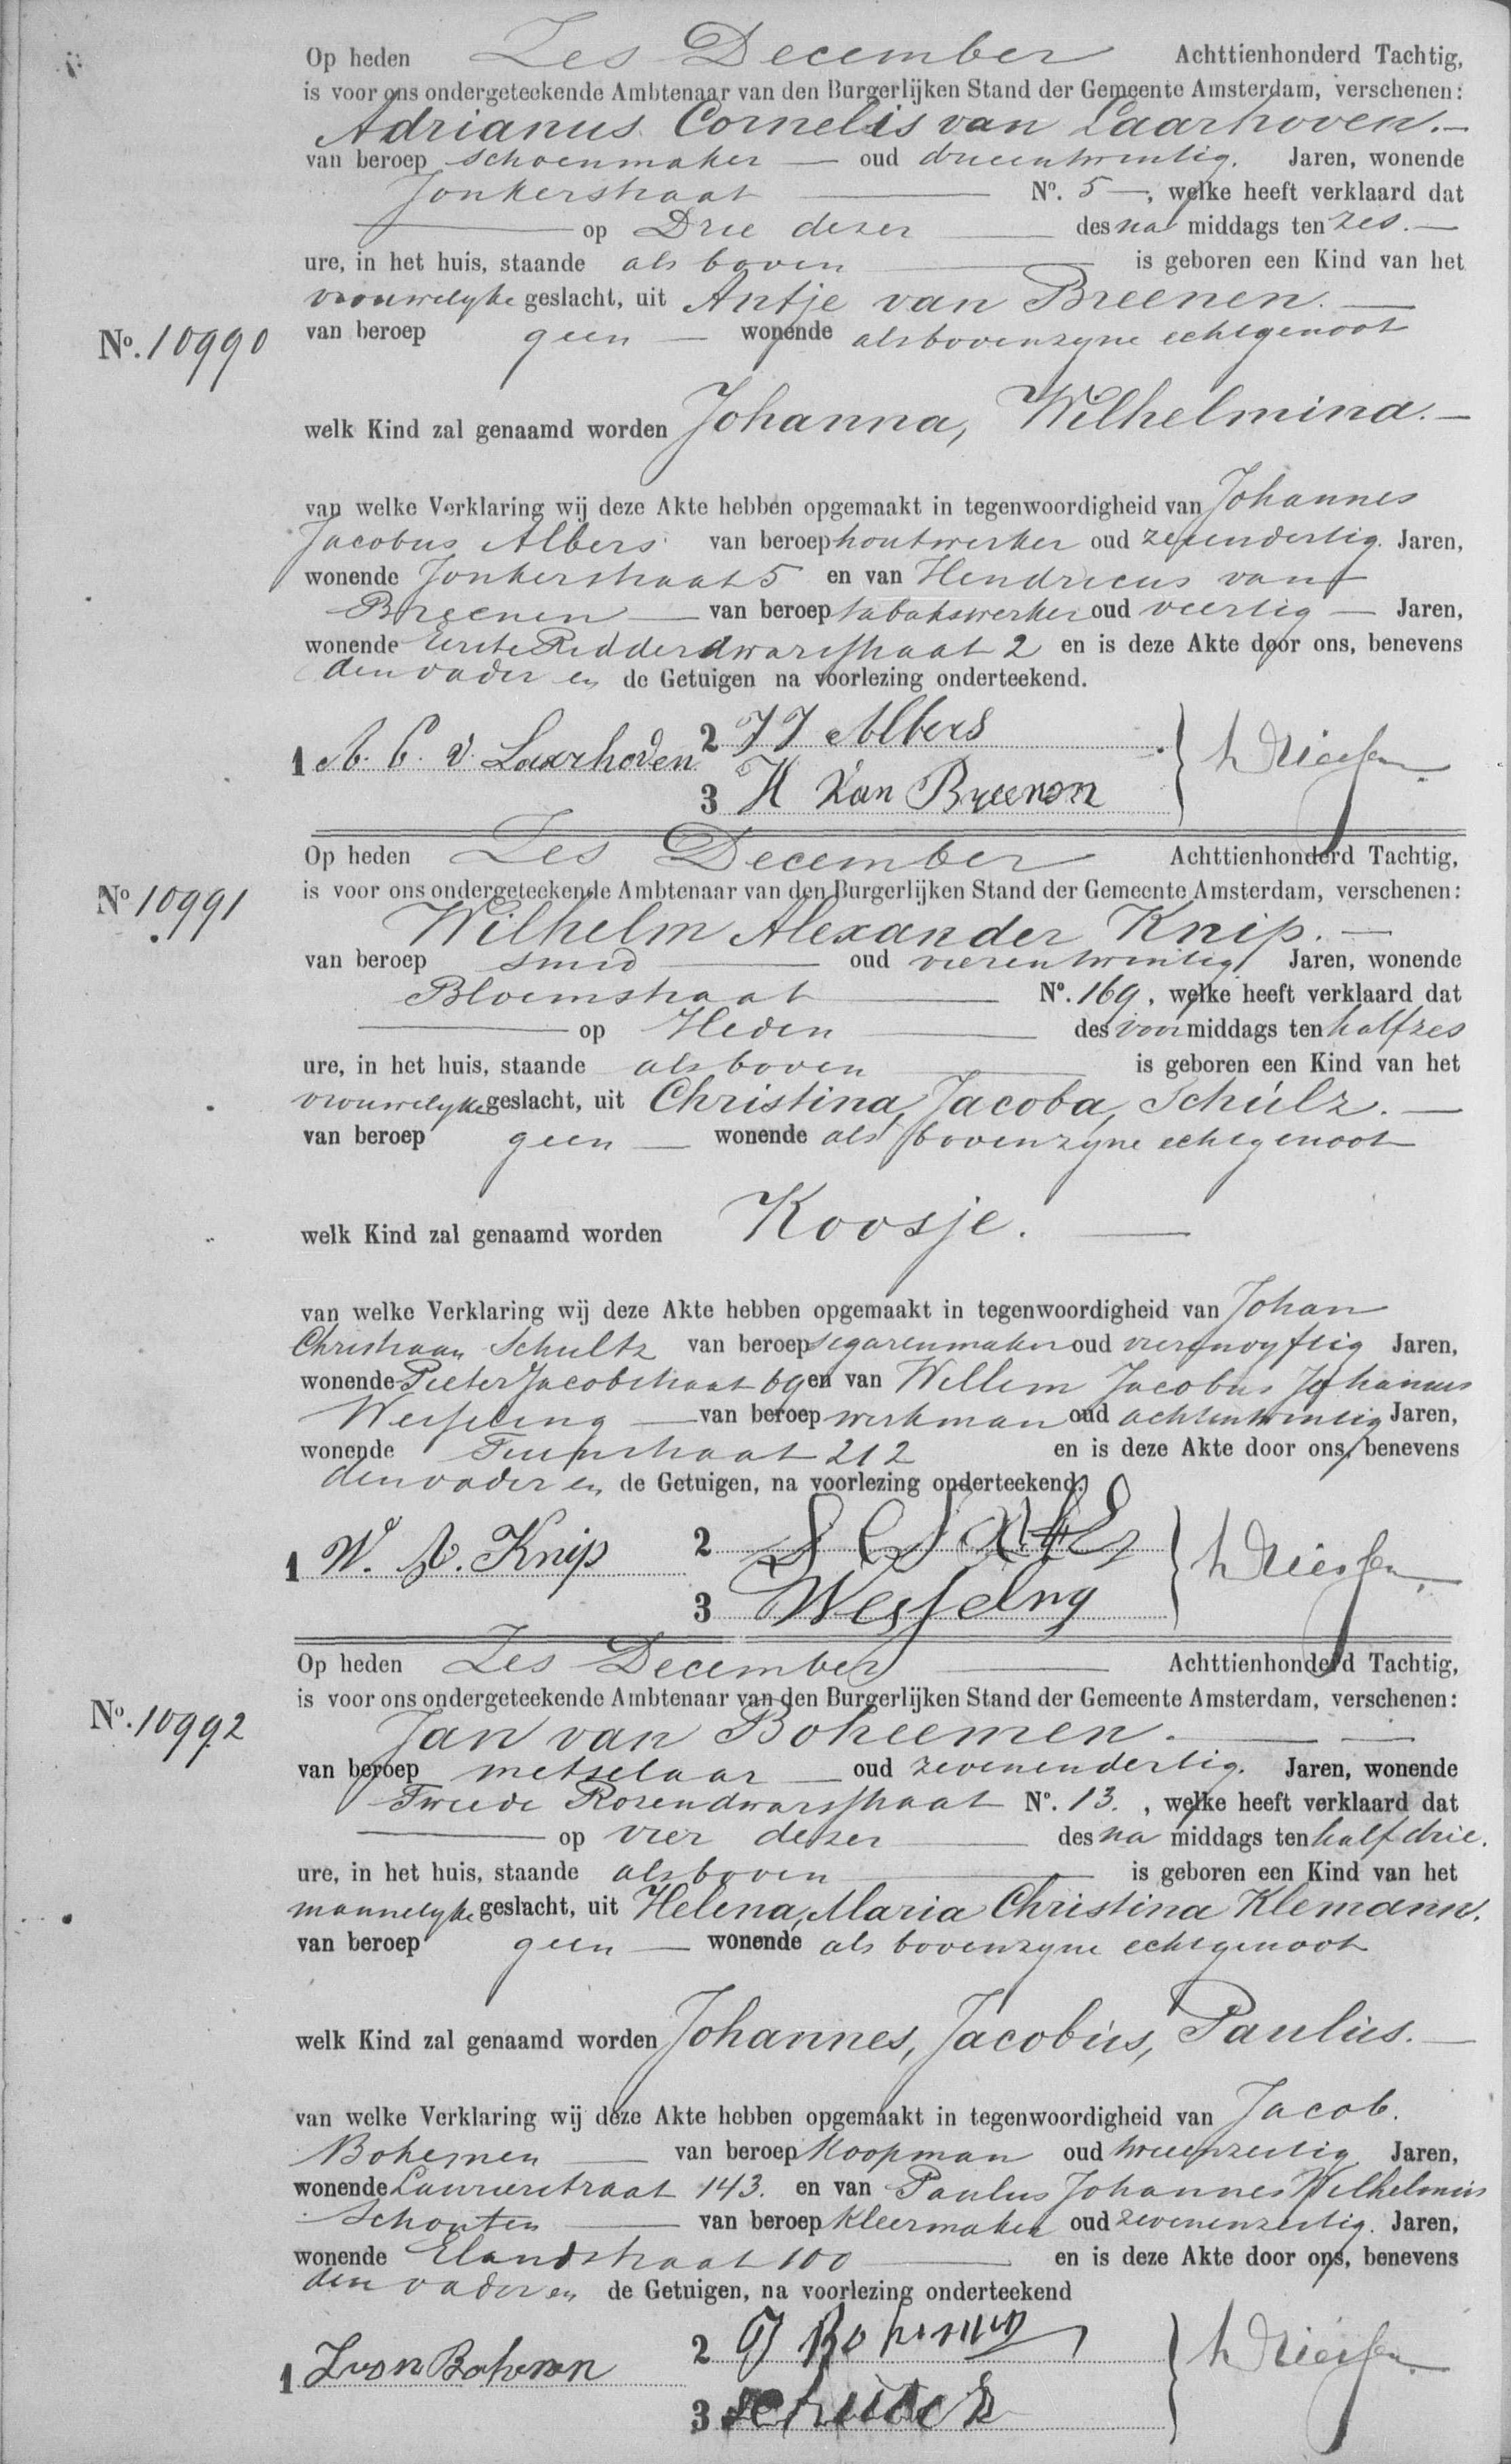 Op heden Zes December Achttienhonderd Tachtig,
is voor ons ondergeteekende Ambtenaar van den Burgerlijken Stand der Gemeente Amsterdam, verschenen:
Adrianus Cornelis van Laarhoven.
van beroep schoenmaker oud drieentwintig. Jaren, wonende
Jonkerstraat No. 5, welke heeft verklaard dat
op Drie dezer des na middags ten zes.
ure, in het huis, staande als boven is geboren een Kind van het
vrouwelyke geslacht, uit Antje van Breenen.
No. 10990 van beroep geen wonende als boven zyne echtgenoot
welk Kind zal genaamd worden Johanna, Wilhelmina.
van welke Verklaring wij deze Akte hebben opgemaakt in tegenwoordigheid van Johannes
Jacobus Albers van beroep houtwerker oud Jaren,
wonende Jonkerstraat 5 en van Hendricus van
Breenen van beroep tabakswerker oud veertig Jaren,
wonende Eerste Ridderdwarsstraat 2 en is deze Akte door ons, benevens
den vader en de Getuigen na voorlezing onderteekend.
1 A. C. v. Laarhoven 2 JJ Albers
3 H Van Breenen
Op heden Zes December Achttienhonderd Tachtig,
No 10991 is voor ons ondergeteekende Ambtenaar van den Burgerlijken Stand der Gemeente Amsterdam, verschenen:
Wilhelm Alexander Knip.
van beroep smid oud vierentwintig Jaren, wonende
Bloemstraat No. 169, welke heeft verklaard dat
op Heden des voor middags ten half zes
ure, in het huis, staande als boven is geboren een Kind van het
vrouwelyke geslacht, uit Christina, Jacoba, Schulz.
van beroep geen wonende als boven zyne echtgenoot
welk Kind zal genaamd worden Koosje.
van welke Verklaring wij deze Akte hebben opgemaakt in tegenwoordigheid van Johan
Christiaan Schultz van beroep segarenmaker oud vierenvyftig Jaren,
wonende Pieter Jacobstraat 69 en van Willem Jacobus Johannes
Wesseling van beroep werkman oud achtentwintig Jaren,
wonende Tuinstraat 212 en is deze Akte door ons, benevens
den vader en de Getuigen, na voorlezing onderteekend.
1 W. A. Knip 2
3 Wesseling
Op heden Zes December Achttienhonderd Tachtig,
No. 10992 is voor ons ondergeteekende Ambtenaar van den Burgerlijken Stand der Gemeente Amsterdam, verschenen:
Jan van Boheemen.
van beroep metselaar oud zevenendertig. Jaren, wonende
Tweede Rozendwarsstraat No. 13. , welke heeft verklaard dat
op vier dezer des na middags ten half drie.
ure, in het huis, staande als boven is geboren een Kind van het
mannelyke geslacht, uit Helena, Maria Christina Klemann.
van beroep geen wonende als boven zyne echtgenoot
welk Kind zal genaamd worden Johannes, Jacobus, Paulus.
van welke Verklaring wij deze Akte hebben opgemaakt in tegenwoordigheid van Jacob.
Bohemen van beroep Koopman oud tweenzestig Jaren,
wonende Laurierstraat 143. en van Paulus Johannes Wilhelmus
Schouten van beroep Kleermaker oud zevenenzestig. Jaren,
wonende Elandstraat 100 en is deze Akte door ons, benevens
den vader en de Getuigen, na voorlezing onderteekend
1 2
3